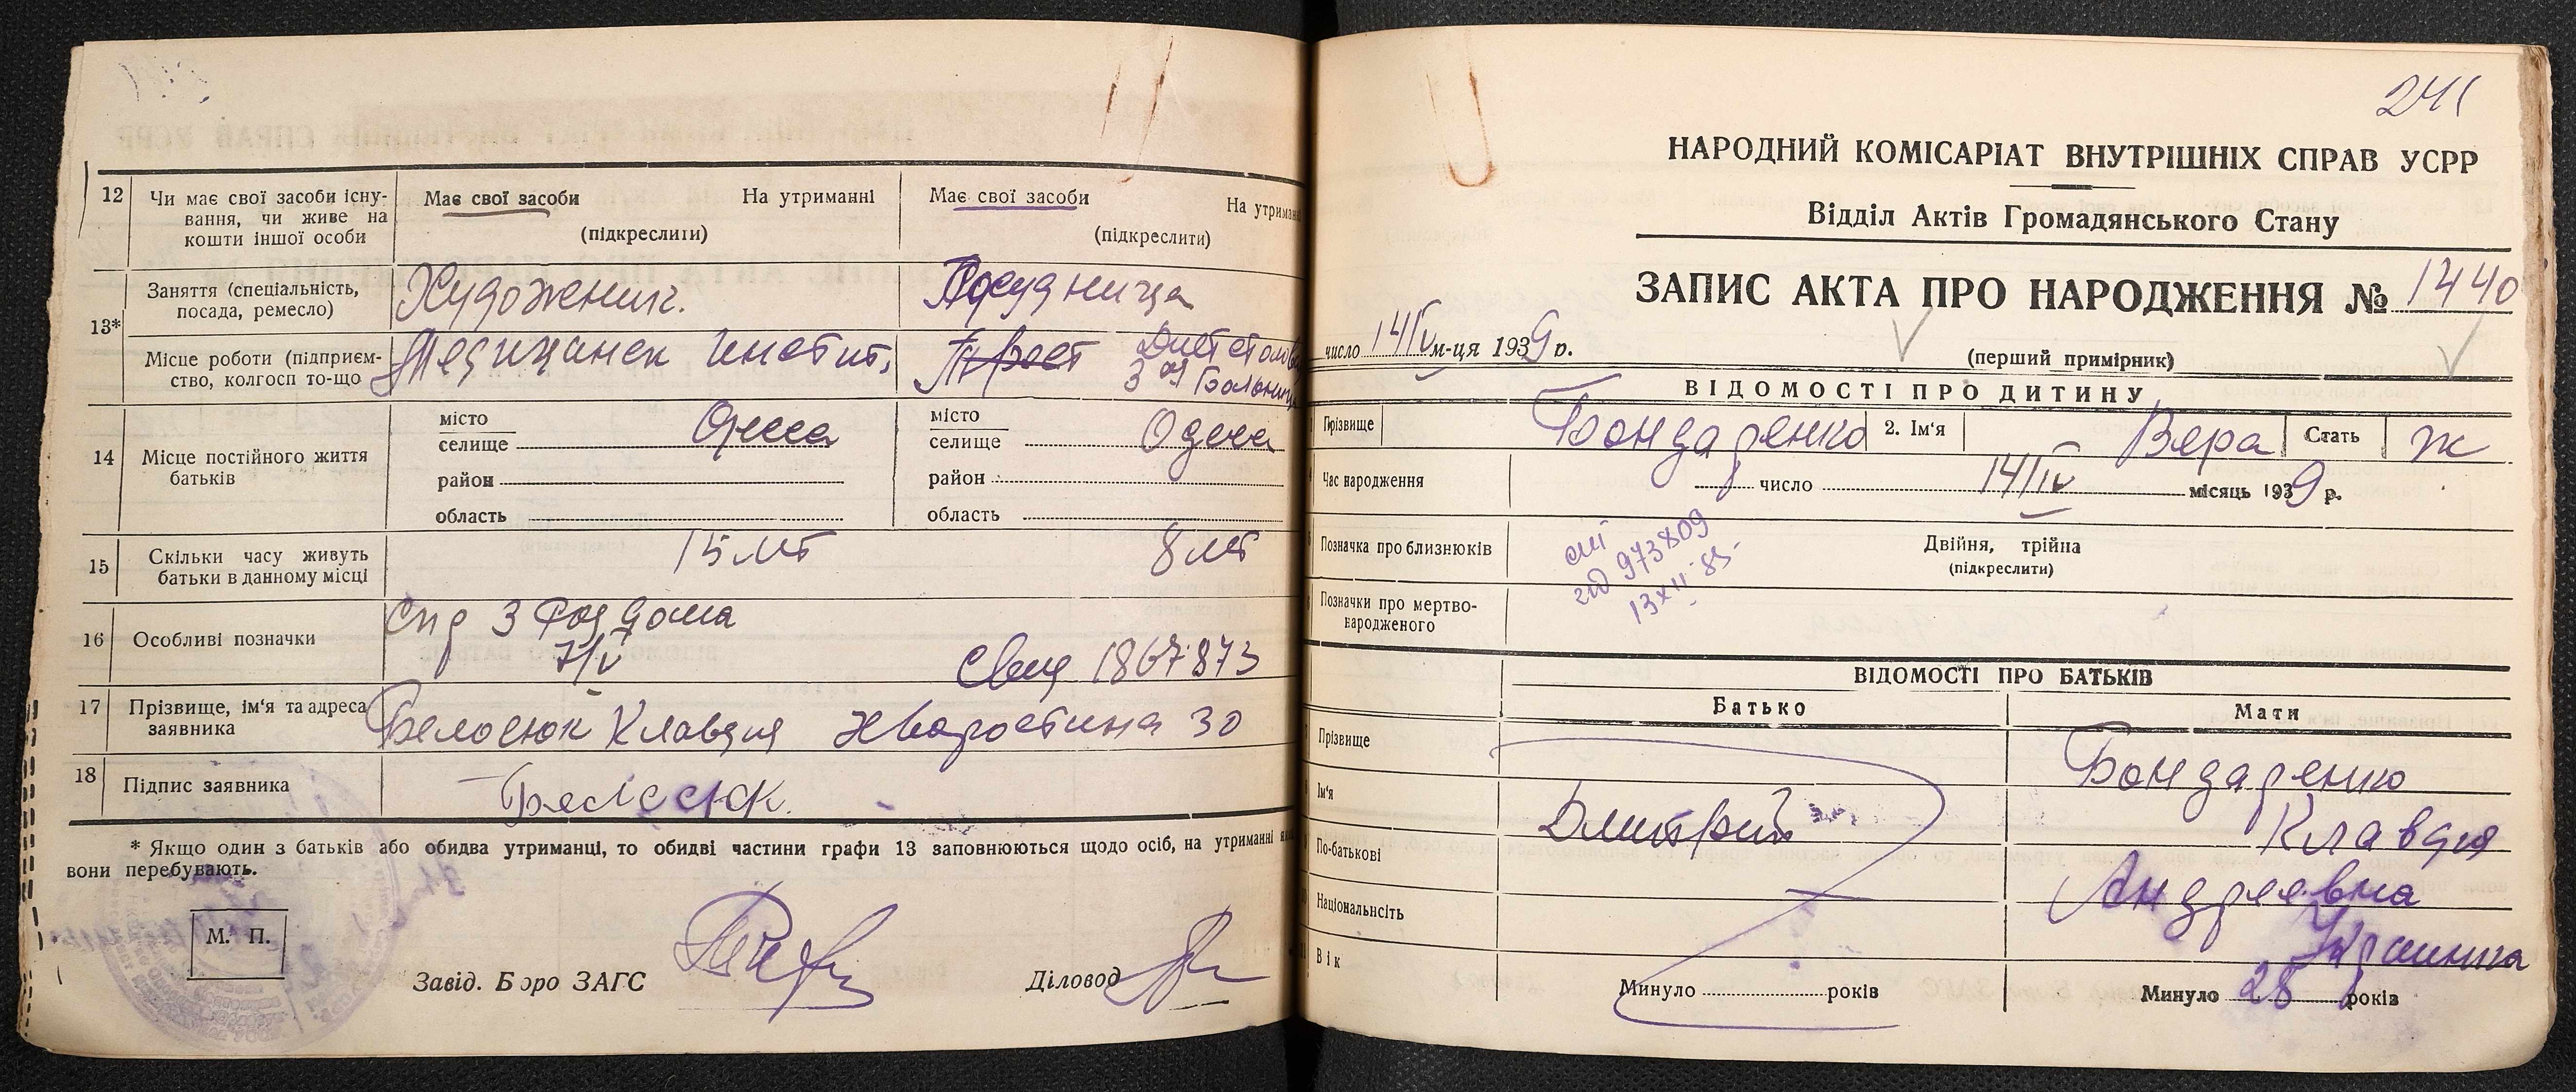 12 Чи має свої засоби існу-
вання, чи живе на
кошти іншої особи
Має свої засоби На утриманні
(підкреслити)
Має свої засоби На утриманні
(підкреслити)
13*
Заняття (спеціальність,
посада, ремесло)
Художник.
Посудница
Місце роботи (підприєм-
ство, колгосп то-що
Медицинск инстит.
Трест Диет столов
3 ой Больниц
14 Місце постійного життя
батьків
місто
селище Одесса
район
область
місто
селище Одесса
район
область
15 Скільки часу живуть
батьки в данному місці
15 лет
8 лет
16 Особливі позначки
Спр 3 Род дома
7/V
Свид 1867873
17 Прізвище, ім'я та адреса
заявника
Белосюк Клавдия Хворостина 30
18 Підпис заявника
Белосюк.
* Якщо один з батьків або обидва утриманці, то обидві частини графи 13 заповнюються щодо осіб, на утриманні
вони перебувають.
М. П.
Завід. Бюро ЗАГС
Діловод
241
НАРОДНИЙ КОМІСАРІАТ ВНУТРІШНІХ СПРАВ УСРР
Відділ Актів Громадянського Стану
ЗАПИС АКТА ПРО НАРОДЖЕННЯ № 1440
число 14/IV м-ця 1939 р.
(перший примірник)
ВІДОМОСТІ ПРО ДИТИНУ
Прізвище Бондаренко 2. Ім'я Вера Стать ж
Час народження число 14/IV місяць 1939 р.
Позначка про близнюків
Двійня, трійна
(підкреслити)
973809
13 XII 83
Позначки про мертво-
народженого
ВІДОМОСТІ ПРО БАТЬКІВ
Батько Мати
Прізвище Бондаренко
Ім'я Дмитрий Клавдия
По-батькові Андреевна
Національнсіть Украинка
Вік
Минуло років
Минуло 28 років